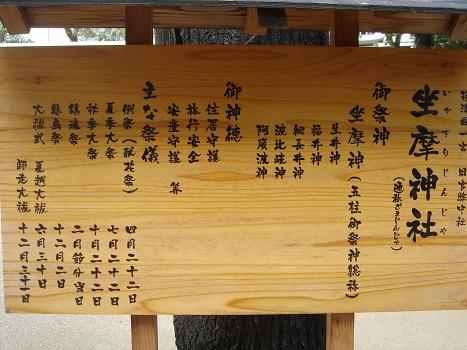 いかすりじんじゃ
坐摩神社
(通称ざまじんじゃ)
御祭神
坐摩神(五柱御祭神総称)
生井神
福井神
綱長井神
波比岐神
阿須波神
御神徳
住居守護
旅行安全
安産守護 等
主な祭儀
例祭(献花祭) 四月二十二日
夏季大祭 七月二十二日
秋季大祭 十月二十二日
鎮魂祭 二月節分当日
大祓式 夏越大祓 六月三十日
師走大祓 十二月三十一日